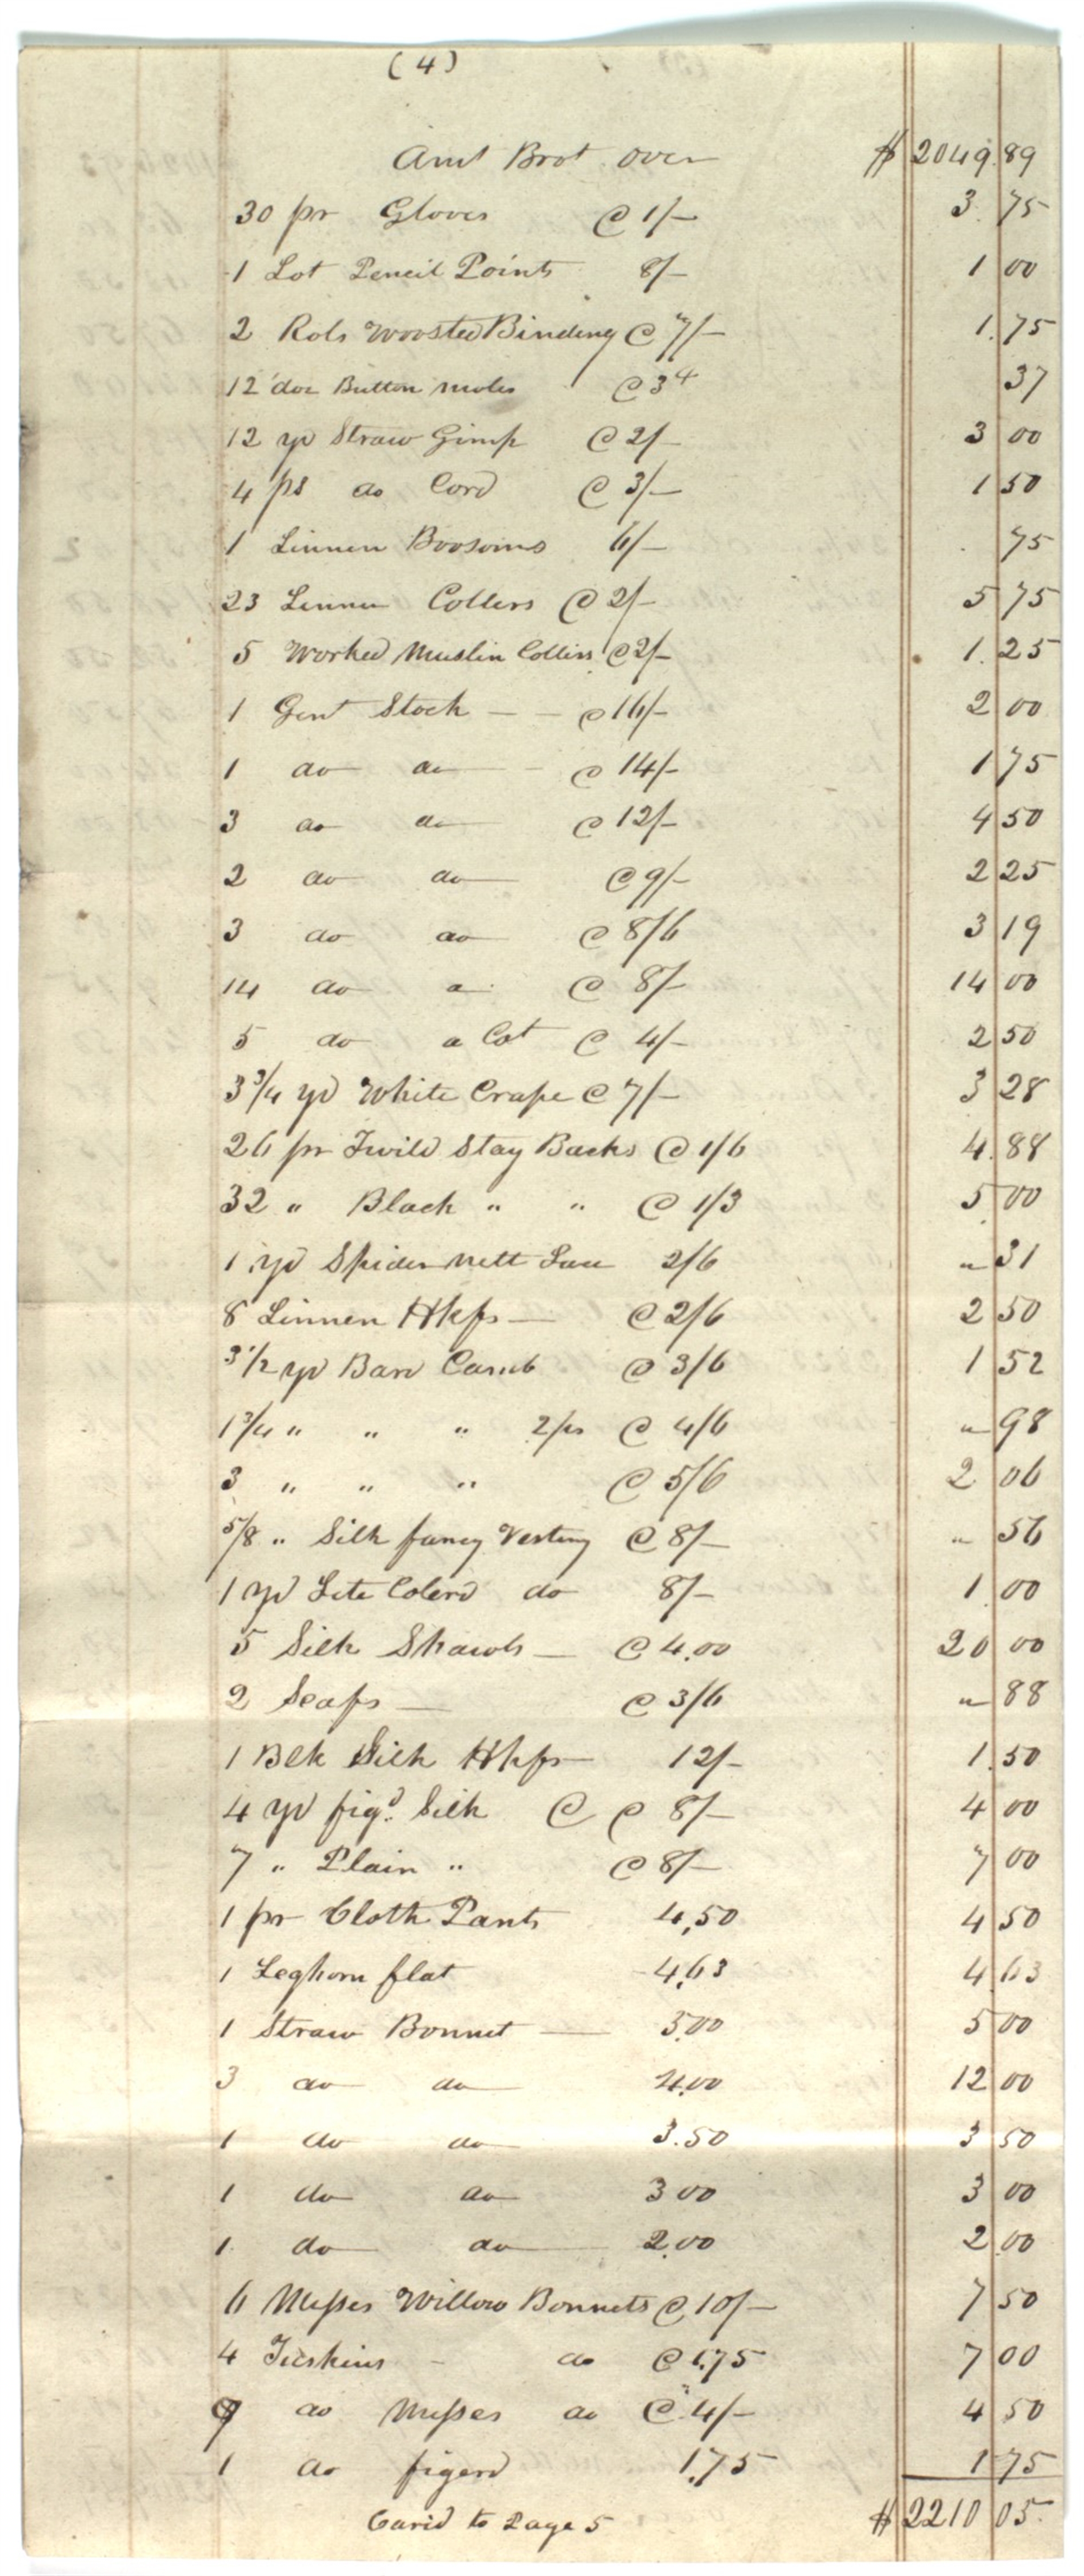 (4)
Amt Brot over $ 2049.89
30 pr Gloves @ 1/– 3.75
1 Lot Pencil Points 8/– 1 00
2 Rols Woosted Binding @ 7/– 1.75
12 doz Button molds @ 3d 37
12 yd Straw Gimp @ 2/– 3 00
4 ps do Cord @ 3/– 1 50
1 Linnen Boosoms 6/– 75
23 Linnen Collers @ 2/– 5 75
5 Worked Muslin Collers @ 2/– 1.25
1 Gent Stock – – @ 16/– 2 00
1 do do – @ 14/– 1 75
3 do do @ 12/– 4 50
2 do do @ 9/– 2 25
3 do do @ 8/6 3 19
14 do do @ 8/– 14 00
5 do do Cot @ 4/– 2 50
3 3/4 yd White Crape @ 7/– 3 28
26 pr Twild Stay Backs @ 1/6 4.88
32 " Black " " @ 1/3 5 00
1 yd Spider nett Lace 2/6 " 31
8 Linnen Hkfs – @ 2/6 2 50
3 1/2 yd Bard Camb @ 3/6 1 52
1 3/4 " " " 2 ps @ 4/6 " 98
3 " " " @ 5/6 2 06
5/8 " Silk fancy Vesting @ 8/– " 56
1 yd Lite Colerd do 8/– 1.00
5 Silk Shawls – @ 4.00 20 00
2 Scafs – @ 3/6 " 88
1 Blk Silk Hkfs – 12/– 1.50
4 yd figd. Silk @ @ 8/– 4 00
7 " Plain " @ 8/– 7 00
1 pr Cloth Pants 4,50 4 50
1 Leghorn flat 4,63 4 63
1 Straw Bonnet – 5.00 5 00
3 do do 4.00 12 00
1 do do 3.50 3 50
1 do do 3 00 3 00
1 do do 2.00 2.00
6 Misses Willow Bonnets @ 10/– 7 50
4 Tuskins – do @ 1.75 7 00
9 do Misses do @ 4/– 4 50
1 do figerd 1.75 1 75
Carid to Page 5 $ 2210 05.